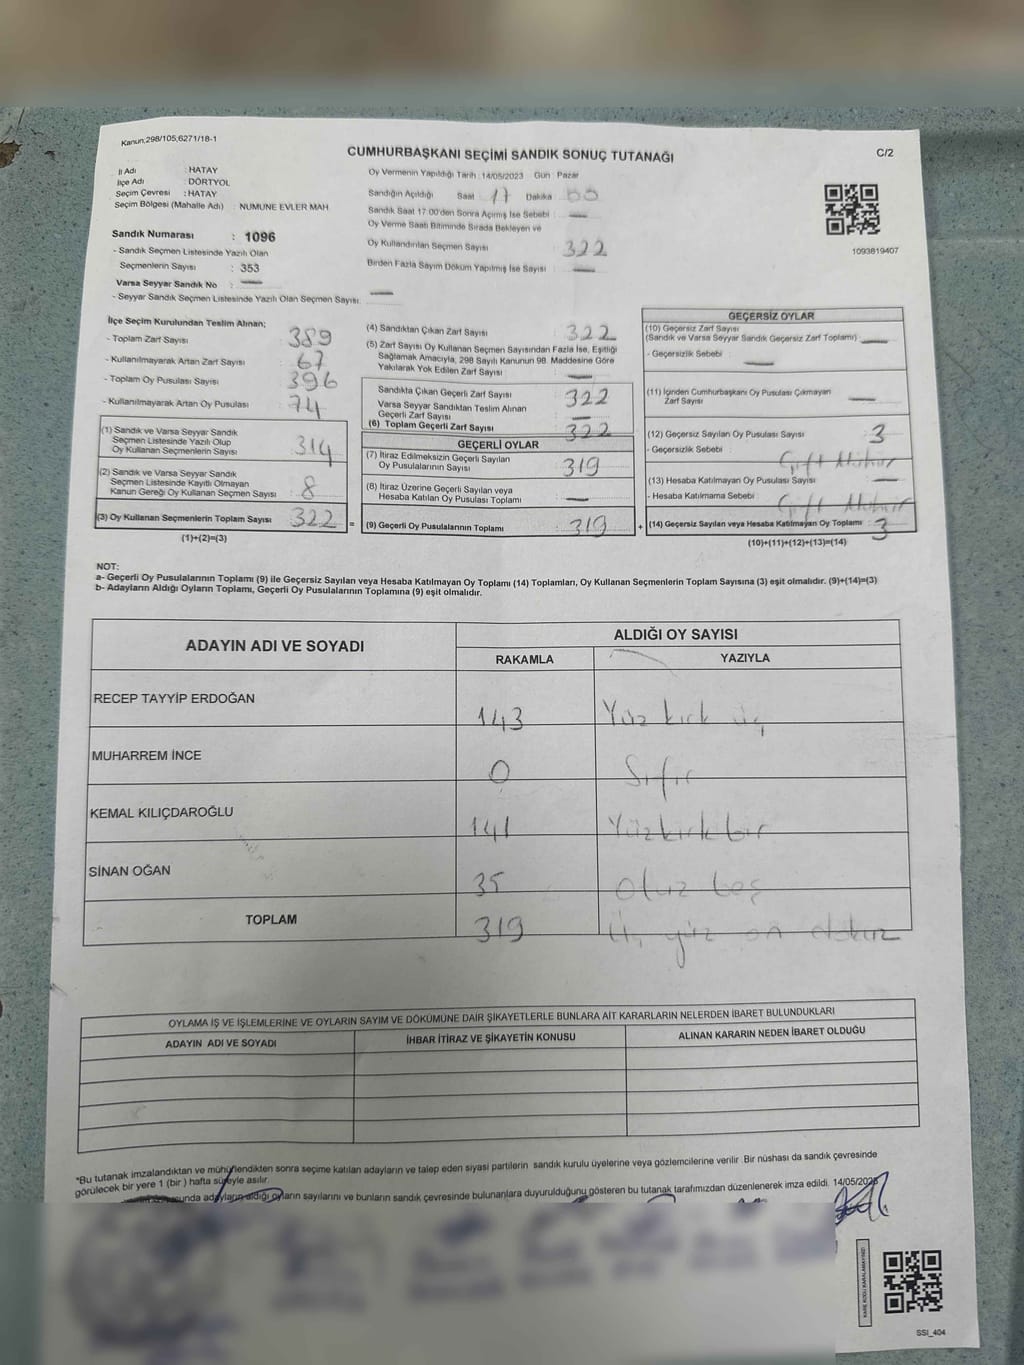 Kanun;298/105,6271/18-1
CUMHURBAŞKANI SEÇİMİ SANDIK SONUÇ TUTANAĞI
C/2
İl Adı : HATAY
İlçe Adı : DÖRTYOL
Seçim Çevresi : HATAY
Seçim Bölgesi (Mahalle Adı) NUMUNE EVLER MAH.
Sandık Numarası : 1096
- Sandık Seçmen Listesinde Yazılı Olan
Seçmenlerin Sayısı : 353
Varsa Seyyar Sandık No : —
- Seyyar Sandık Seçmen Listesinde Yazılı Olan Seçmen Sayısı: —
Oy Vermenin Yapıldığı Tarih :14/05/2023 Gün : Pazar
Sandığın Açıldığı Saat : 17 Dakika : 00
Sandık Saat 17:00'den Sonra Açılmış İse Sebebi : —
Oy Verme Saati Bitiminde Sırada Bekleyen ve
Oy Kullandırılan Seçmen Sayısı : 322
Birden Fazla Sayım Döküm Yapılmış İse Sayısı : —
1093819407
İlçe Seçim Kurulundan Teslim Alınan;
- Toplam Zarf Sayısı : 389
- Kullanılmayarak Artan Zarf Sayısı : 67
- Toplam Oy Pusulası Sayısı : 396
- Kullanılmayarak Artan Oy Pusulası : 74
(1) Sandık ve Varsa Seyyar Sandık
Seçmen Listesinde Yazılı Olup
Oy Kullanan Seçmenlerin Sayısı : 314
(2) Sandık ve Varsa Seyyar Sandık
Seçmen Listesinde Kayıtlı Olmayan
Kanun Gereği Oy Kullanan Seçmen Sayısı : 8
(3) Oy Kullanan Seçmenlerin Toplam Sayısı : 322
(1)+(2)=(3)
(4) Sandıktan Çıkan Zarf Sayısı : 322
(5) Zarf Sayısı Oy Kullanan Seçmen Sayısından Fazla İse, Eşitliği
Sağlamak Amacıyla, 298 Sayılı Kanunun 98. Maddesine Göre
Yakılarak Yok Edilen Zarf Sayısı : —
Sandıkta Çıkan Geçerli Zarf Sayısı : 322
Varsa Seyyar Sandıktan Teslim Alınan
Geçerli Zarf Sayısı : —
(6) Toplam Geçerli Zarf Sayısı : 322
GEÇERLİ OYLAR
(7) İtiraz Edilmeksizin Geçerli Sayılan
Oy Pusulalarının Sayısı : 319
(8) İtiraz Üzerine Geçerli Sayılan veya
Hesaba Katılan Oy Pusulası Toplamı : —
=
(9) Geçerli Oy Pusulalarının Toplamı : 319
+
GEÇERSİZ OYLAR
(10) Geçersiz Zarf Sayısı
(Sandık ve Varsa Seyyar Sandık Geçersiz Zarf Toplamı) : —
- Geçersizlik Sebebi : —
(11) İçinden Cumhurbaşkanı Oy Pusulası Çıkmayan
Zarf Sayısı : —
(12) Geçersiz Sayılan Oy Pusulası Sayısı : 3
- Geçersizlik Sebebi : Çift Mühür
(13) Hesaba Katılmayan Oy Pusulası Sayısı : —
- Hesaba Katılmama Sebebi : Çift Mühür
(14) Geçersiz Sayılan veya Hesaba Katılmayan Oy Toplamı : 3
(10)+(11)+(12)+(13)=(14)
NOT:
a- Geçerli Oy Pusulalarının Toplamı (9) ile Geçersiz Sayılan veya Hesaba Katılmayan Oy Toplamı (14) Toplamları, Oy Kullanan Seçmenlerin Toplam Sayısına (3) eşit olmalıdır. (9)+(14)=(3)
b- Adayların Aldığı Oyların Toplamı, Geçerli Oy Pusulalarının Toplamına (9) eşit olmalıdır.
ADAYIN ADI VE SOYADI
ALDIĞI OY SAYISI
RAKAMLA YAZIYLA
RECEP TAYYİP ERDOĞAN 143 Yüz kırk üç
MUHARREM İNCE 0 Sıfır
KEMAL KILIÇDAROĞLU 141 Yüzkırkbir
SİNAN OĞAN 35 Otuz beş
TOPLAM 319 Üç yüz on dokuz
OYLAMA İŞ VE İŞLEMLERİNE VE OYLARIN SAYIM VE DÖKÜMÜNE DAİR ŞİKAYETLERLE BUNLARA AİT KARARLARIN NELERDEN İBARET BULUNDUKLARI
ADAYIN ADI VE SOYADI İHBAR İTİRAZ VE ŞİKAYETİN KONUSU ALINAN KARARIN NEDEN İBARET OLDUĞU
*Bu tutanak imzalandıktan ve mühürlendikten sonra seçime katılan adayların ve talep eden siyasi partilerin sandık kurulu üyelerine veya gözlemcilerine verilir. Bir nüshası da sandık çevresinde
görülecek bir yere 1 (bir) hafta süreyle asılır.
adayların aldığı oyların sayılarını ve bunların sandık çevresinde bulunanlara duyurulduğunu gösteren bu tutanak tarafımızdan düzenlenerek imza edildi. 14/05/2023
KARE KODU KARALAMAYINIZ!
SSI_404